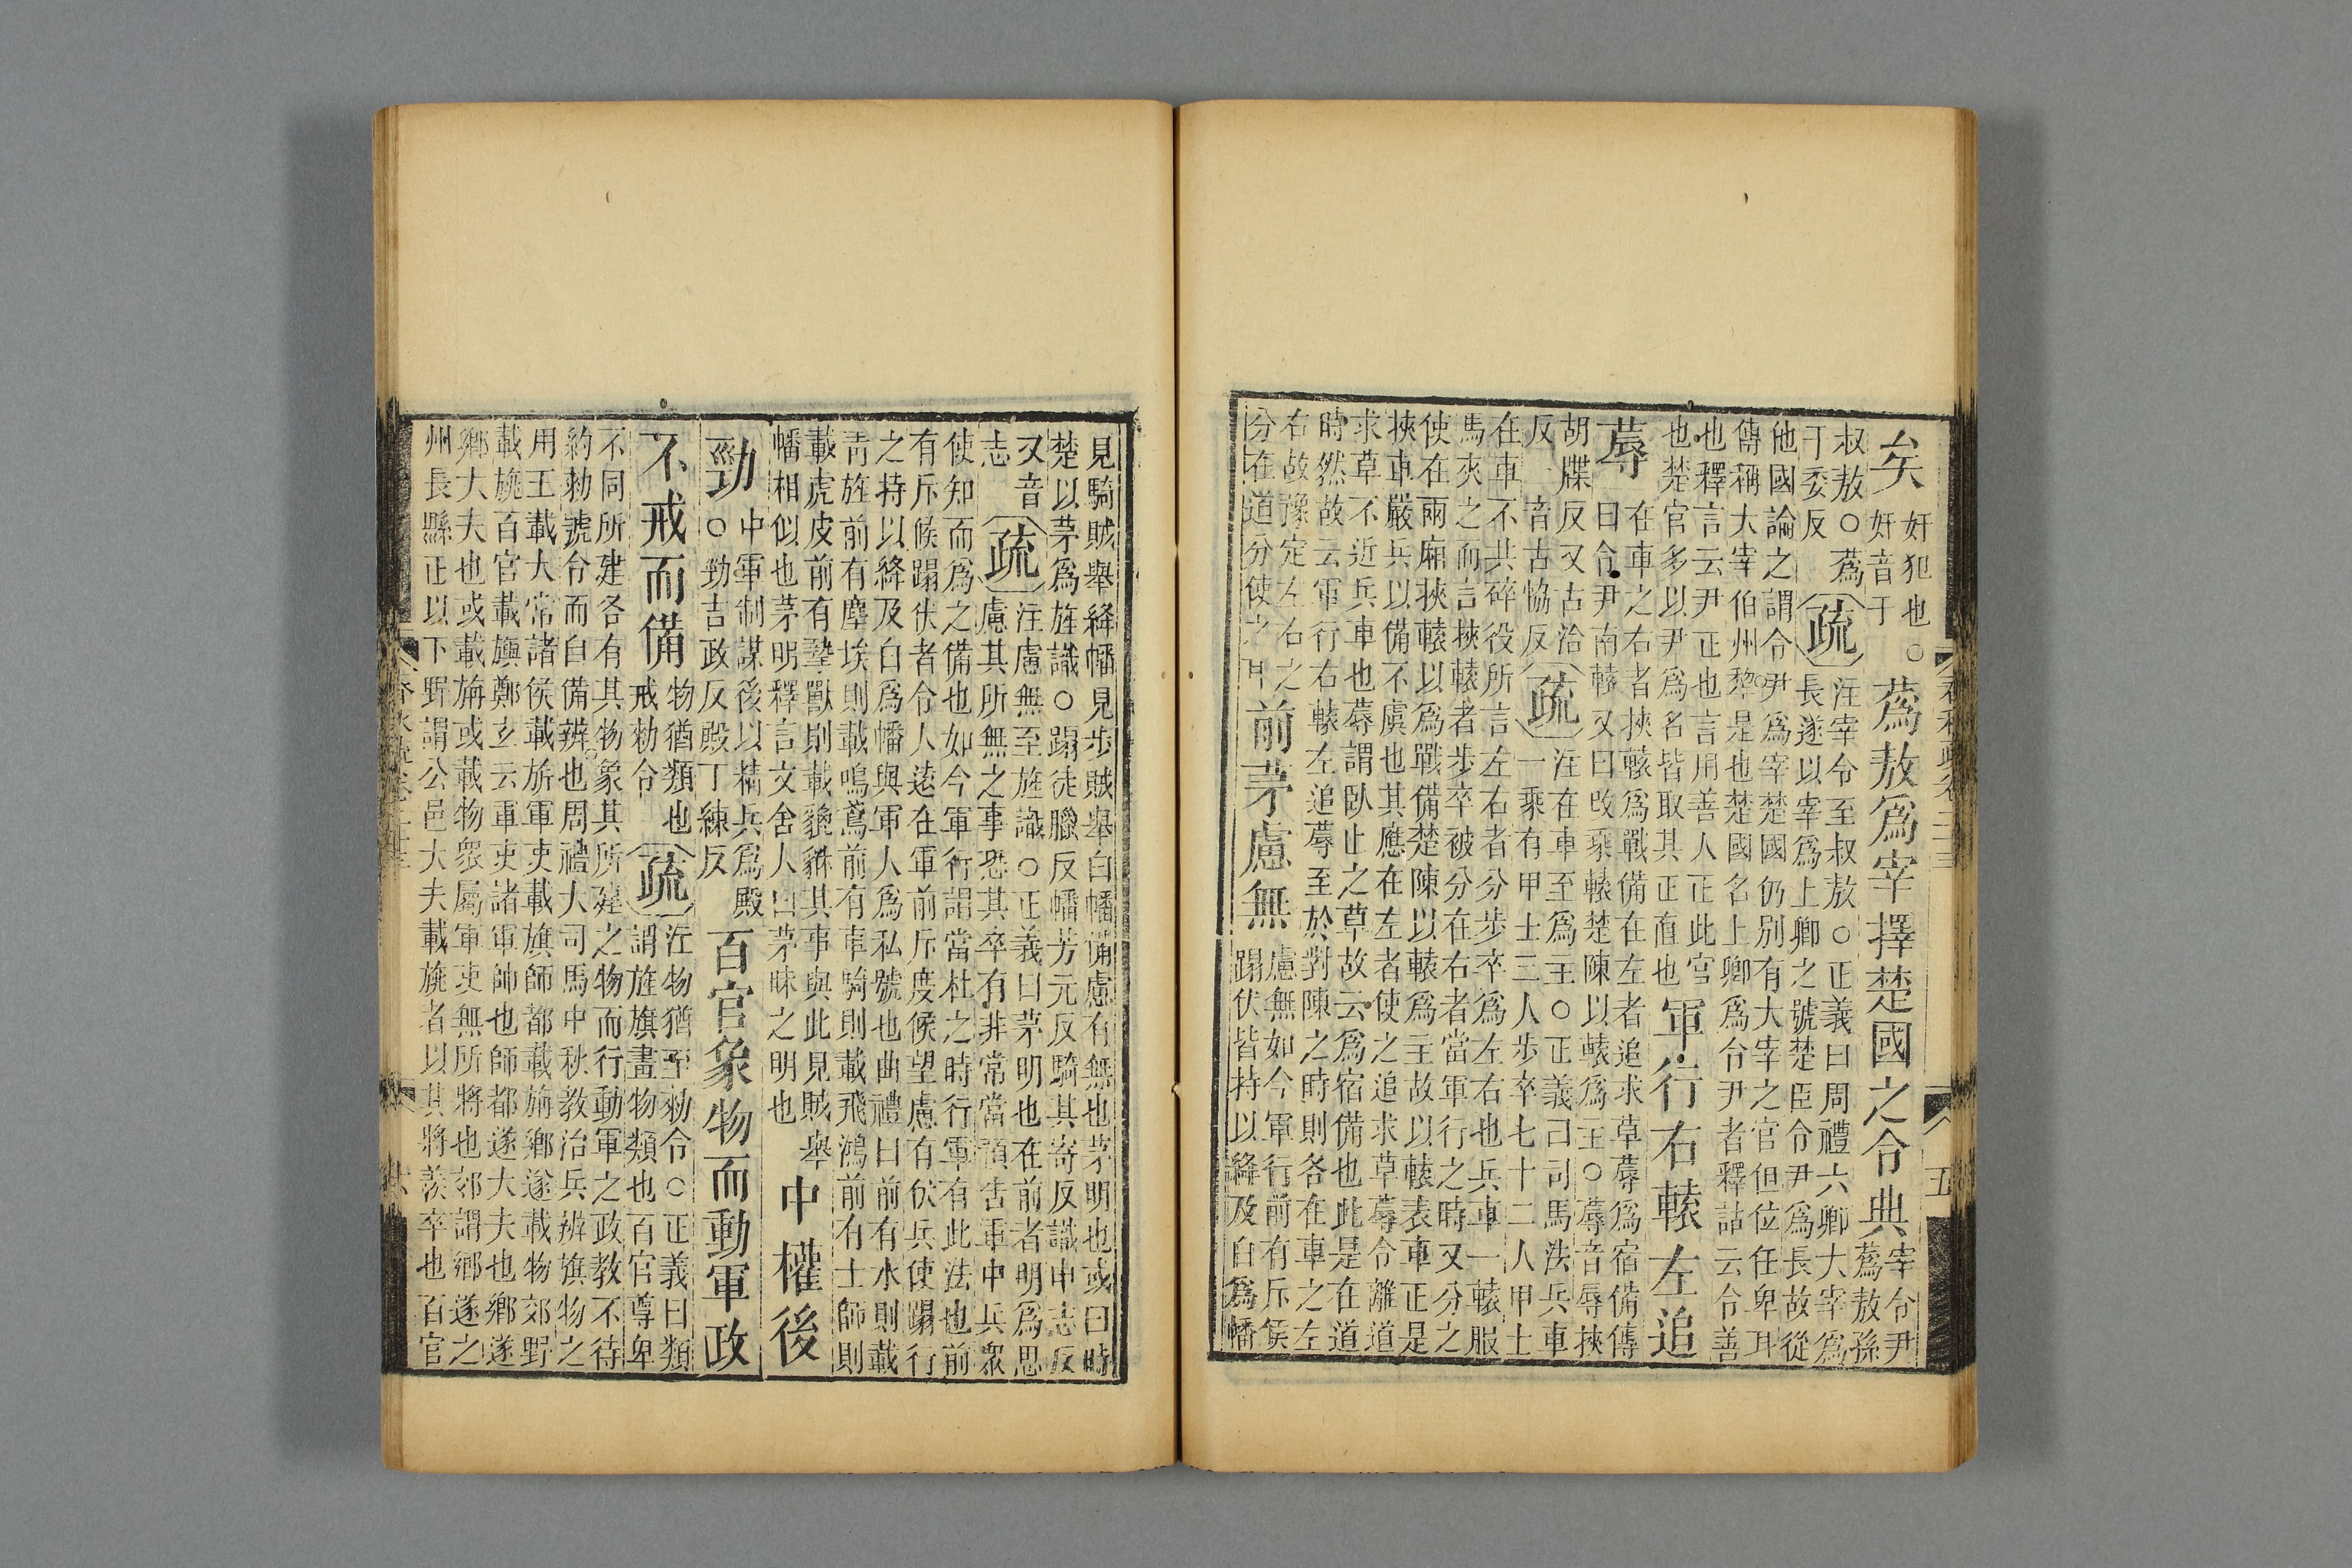 矣
奸犯也○
奸音干
蒍敖爲宰擇楚國之令典
宰令尹
蒍敖孫
叔敖○蒍
于委反
疏
注宰令至叔敖○正義曰周禮六卿大宰爲
長遂以宰爲上卿之號楚臣令尹爲長故從
他國論之謂令尹爲宰楚國仍別有大宰之官但位任卑耳
傳稱大宰伯州犂是也楚國名上卿爲令尹者釋詁云令善
也釋言云尹正也言用善人正此官
也楚官多以尹爲名皆取其正直也
軍行右轅左追
蓐
在車之右者挾轅爲戰備在左者追求草蓐爲宿備傳
曰令尹南轅又曰改乘轅楚陳以轅爲主○蓐音辱挾
胡牒反又古洽
反一音古恊反
疏
注在車至爲主○正義曰司馬法兵車
一乘有甲士三人步卒七十二人甲士
在車不共碎役所言左右者分步卒爲左右也兵車一轅服
馬夾之而言挾轅者步卒被分在右者當軍行之時又分之
使在兩廂挾轅以爲戰備楚陳以轅爲主故以轅表車正是
挾車嚴兵以備不虞也其應在左者使之追求草蓐令離道
求草不近兵車也蓐謂臥止之草故云爲宿備也此是在道
時然故云軍行右轅左追蓐至於對陳之時則各在車之左
右故豫定左右之
分在道分使之耳
前茅慮無
慮無如今軍行前有斥候
蹋伏皆持以絳及白爲幡
春秋疏卷二十三
五
見騎賊舉絳幡見步賊舉白幡備慮有無也茅明也或曰時
楚以茅爲旌識○蹋徒臘反幡芳元反騎其寄反識申志反
又音
志
疏
注慮無至旌識○正義曰茅明也在前者明爲思
慮其所無之事恐其卒有非常當預告軍中兵衆
使知而爲之備也如今軍行謂當杜之時行軍有此法也前
有斥候蹋伏者令人遠在軍前斥度候望慮有伏兵使蹋行
之持以絳及白爲幡與軍人爲私號也曲禮曰前有水則載
靑旌前有塵埃則載鳴鳶前有車騎則載飛鴻前有士師則
載虎皮前有摯獸則載貔貅其事與此見賊舉
幡相似也茅明釋言文舍人曰茅昧之明也
中權後
勁
中軍制謀後以精兵爲殿
○勁吉政反殿丁練反
百官象物而動軍政
不戒而備
物猶類也
戒勑令
疏
注物猶至勑令○正義曰類
謂旌旗畫物類也百官尊卑
不同所建各有其物象其所建之物而行動軍之政敎不待
約勑號令而自備辨也周禮大司馬中秋教治兵辨旗物之
用王載大常諸侯載旂軍吏載旗師都載旃鄕遂載物郊野
載旐百官載旟鄭玄云軍吏諸軍帥也師都遂大夫也鄕遂
鄕大夫也或載旃或載物衆屬軍吏無所將也郊謂鄕遂之
州長縣正以下野謂公邑大夫載旐者以其將羨卒也百官
春秋疏卷二十三